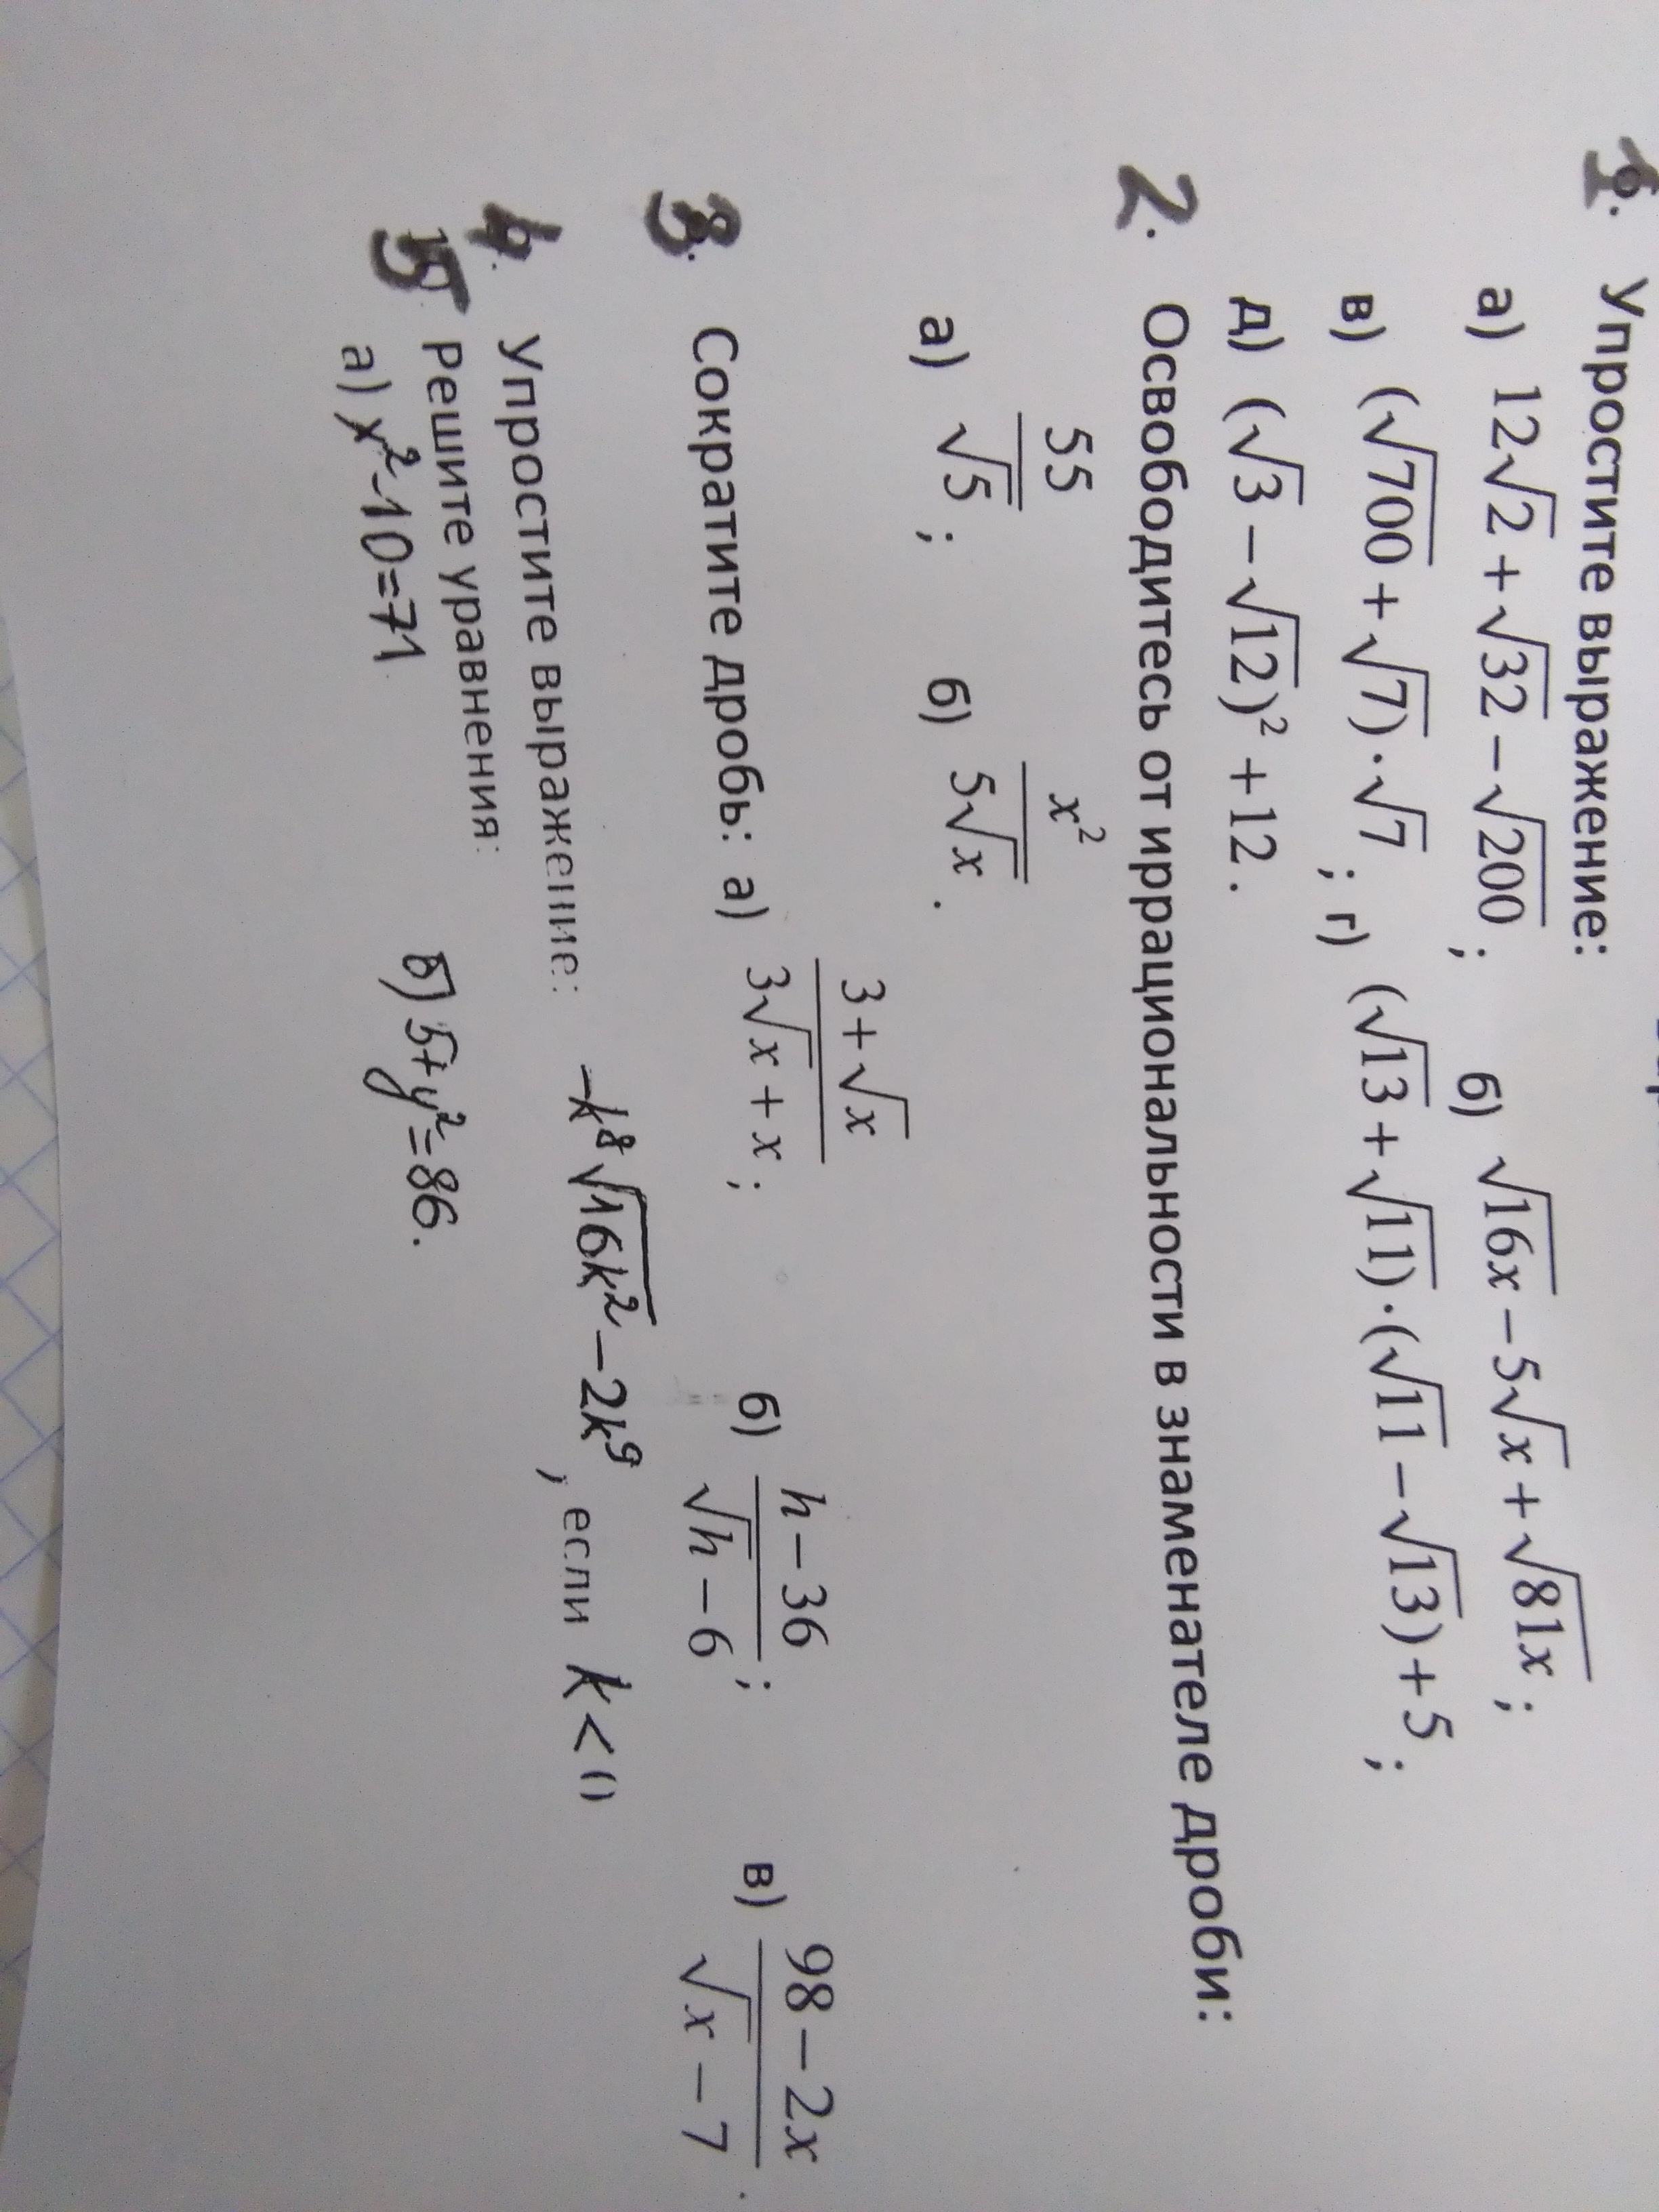 1. Упростите выражение:
а) 12√2 + √32 − √200; б) √16x − 5√x + √81x;
в) (√700 + √7)·√7; г) (√13 + √11)·(√11 − √13) + 5;
д) (√3 − √12)² + 12.
2. Освободитесь от иррациональности в знаменателе дроби:
а) 55/√5; б) x²/5√x.
3. Сократите дробь: а) (3+√x)/(3√x+x); б) (h−36)/(√h−6); в) (98−2x)/(√x−7).
4. Упростите выражение: −k⁸√16k² − 2k⁹, если k<0
5. Решите уравнения:
а) x²−10=71 б) 5+y²=86.